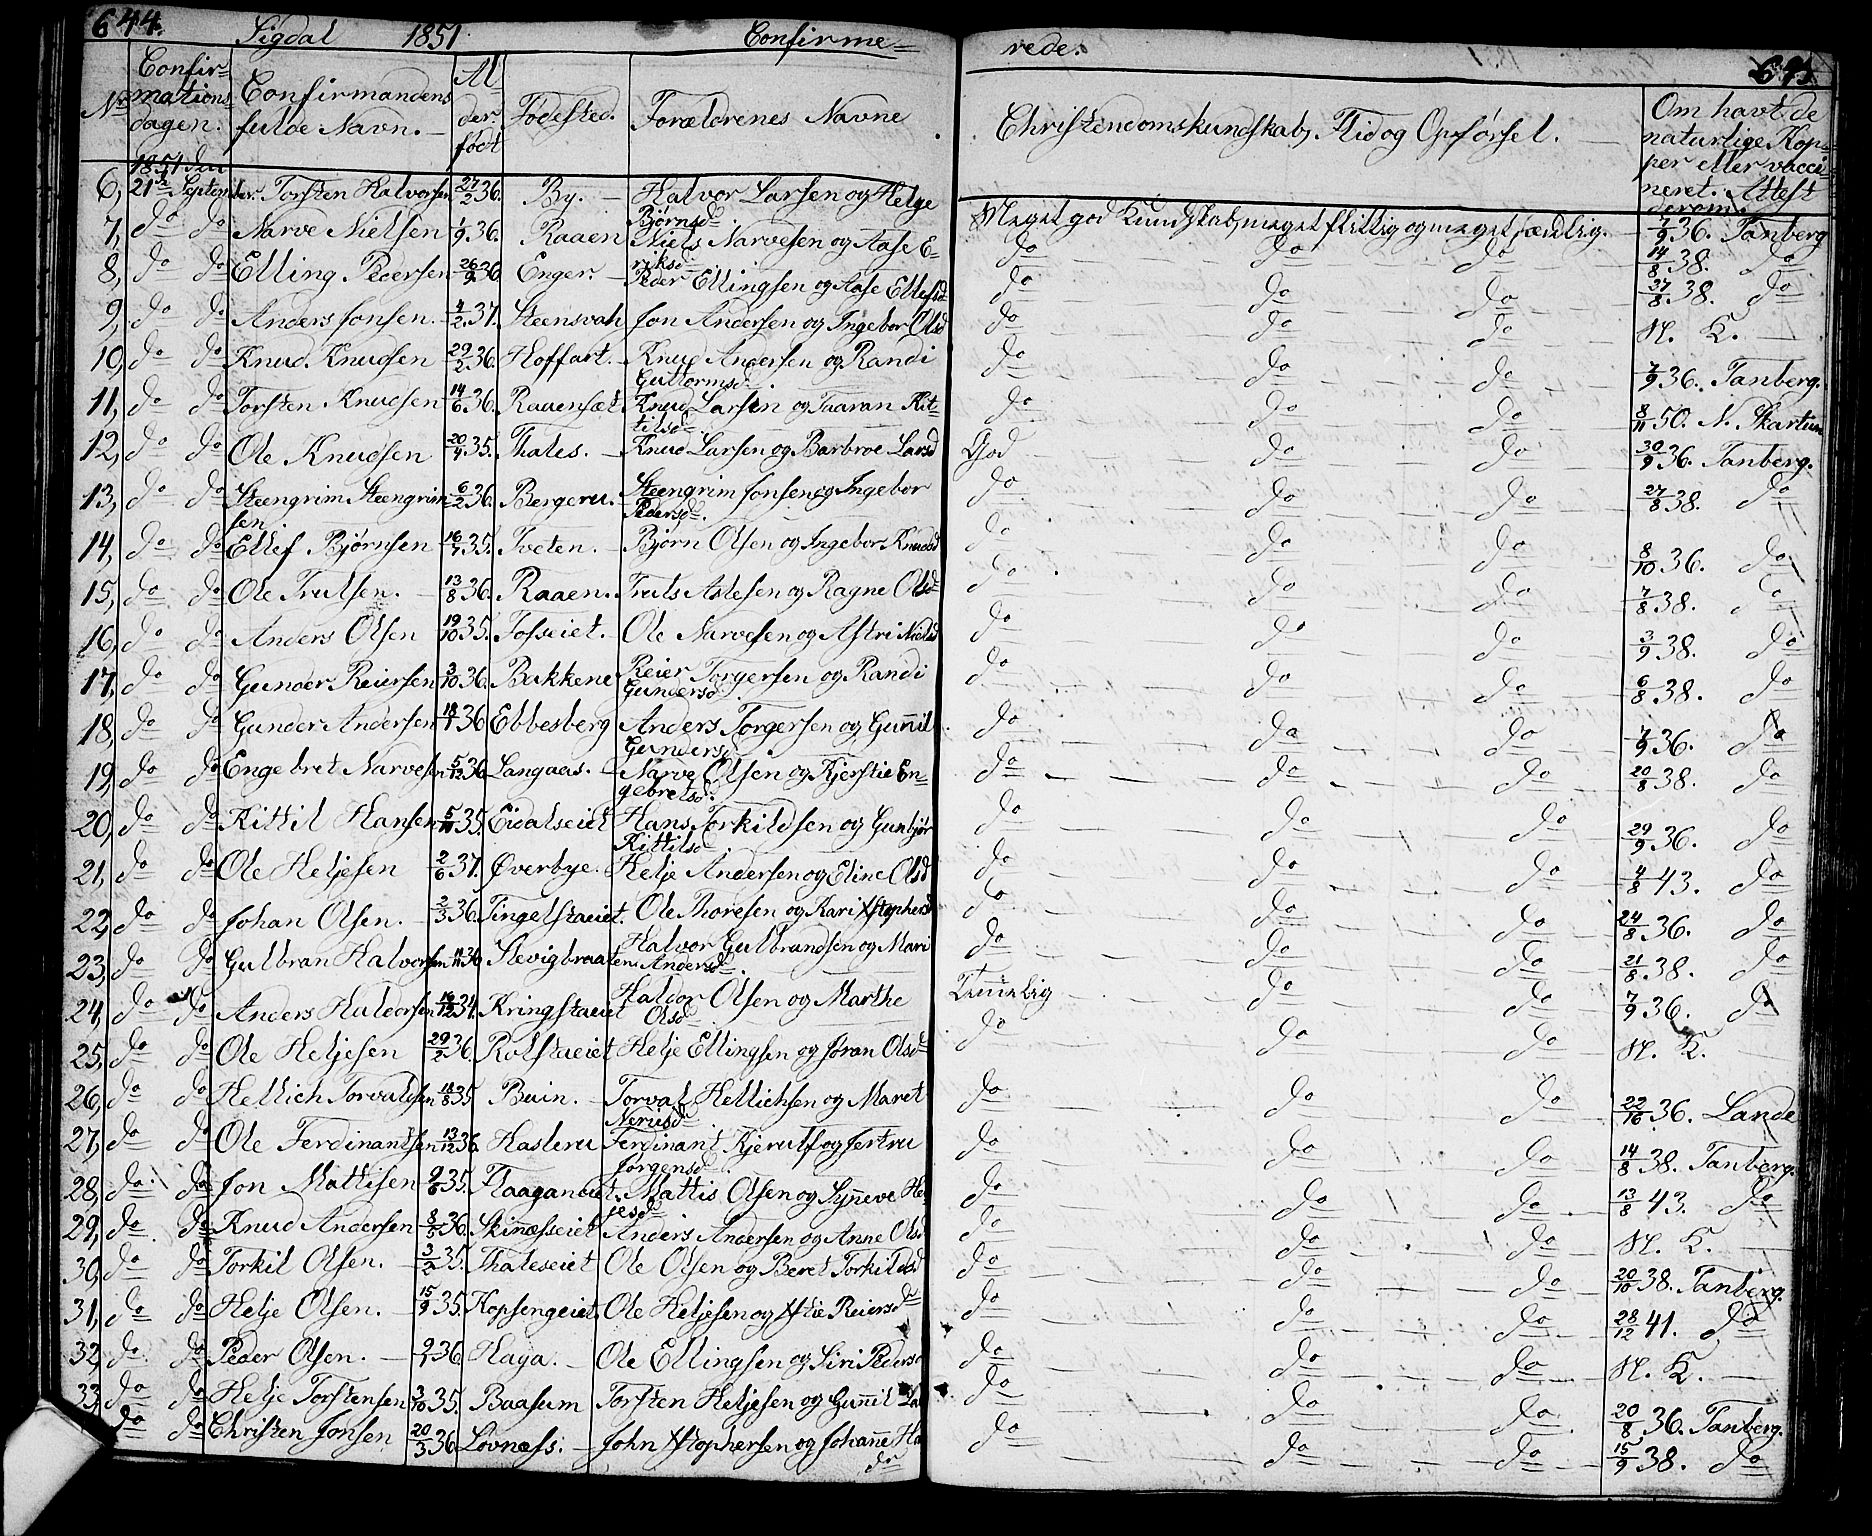 644. Sigdal 1851. Confirme= rede. 645
Nr. Confirmations dagen. Confirmandens fulde Navn. Alder. født Fødested. Forældrenes Navne Christendomskundskab, Flid og Opførsel. Om havt de naturlige Kopper eller vaccineret. Attest derom.
1851 den
6, 21de September. Torsten Halvorsen 27/2 36. By. Halvor Larsen og Helge Bjørnsd. Meget god Kundskab, meget flittig og meget sædelig. 7/9 36. Tanberg
7, do do Narve Nielsen 1/9 36. Raaen Niels Narvesen og Aase Eriksd. do do do 14/8 38. do
8, do do Elling Pedersen 26/9 36 Enger. Peder Ellingsen og Aase Ellefsd do do do 27/8 38. do
9, do do Anders Jonsen. 4/2 37. Steensvah Jon Andersen og Ingebor Olsd do do do N. K.
10, do do Knud Knudsen 29/2 36. Hoffart. Knud Andersen og Randi Guttormsd. do do do 7/9 36. Tanberg.
11, do do Torsten Knudsen 14/6 36. Rauensæt Knud Larsen og Taaran Kittilsd do do do 8/11 50. N. Skartum
12, do do Ole Knudsen 20/4 35. Thales. Knud Larsen og Barbroe Larsd God do do 30/9 36. Tanberg.
13, do do Steengrim Steengrimsen 6/2 36. Bergeru. Steengrim Jonsen og Ingebor Pedersd. do do do 27/8 38. do
14, do do Ellef Bjørnsen 16/7 35. Tveten. Bjørn Olsen og Ingebor Knudsd do do do 8/10 36. do
15, do do Ole Trulsen. 13/8 36. Raaen. Truls Aslesen og Ragne Olsd do do do 7/8 38. do
16, do do Anders Olsen 19/10 35. Tofseiet. Ole Narvesen og Astri Nielsd do do do 3/9 38. do
17, do do Gunder Reiersen 3/10 36. Bukkene Reier Torgersen og Randi Gundersd. do do do 6/8 38. do
18, do do Gunder Andersen 18/1 36 Ebbesberg Anders Torgersen og Gunnil Gundersd do do do 7/9 36. do
19, do do Engebret Narvesen 5/12 36 Langaas. Narve Olsen og Kjerstie Engebretsd. do do do 20/8 38. do
20, do do Kittil Hansen 5/11 35. Eidalseiet Hans Torkildsen og Gunbjør Kittilsd do do do 29/9 36. do
21, do do Ole Heljesen 2/6 37. Øverbye. Helje Andersen og Eline Olsd do do do 4/8 43. do
22, do do Johan Olsen. 2/3 36. Tingelstaeiet. Ole Thoresen og Kari Xstophersd do do do 24/8 36. do
23, do do Gulbran Halvorsen 36 Slevigbraaten Halvor Gulbrandsen og Mari Andersd. do do do 21/8 38. do
24, do do Anders Halvorsen 16/12 34. Kringstaeiet Haldor Olsen og Marthe Olsd. Temmelig do do 7/9 36. do
25, do do Ole Heljesen 29/2 36. Rolstaeiet Helje Ellingsen og Jøran Olsd do do do N. K.
26, do do Hellich Torvalsen 18/8 35 Buin. Torval Hellichsen og Maret Nerisd do do do 22/10 36. Lande
27, do do Ole Ferdinantsen 13/12 36. Hasleru Ferdinant Kjerulf og Jertru Jørgensd. do do do 14/8 38. Tanberg.
28, do do Jon Mattisen 9/6 35. Flaaganeiet. Mattis Olsen og Synneve Heljesd do do do 13/8 43. do
29, do do Knud Andersen 8/5 36. Skinæsseiet Anders Andersen og Anne Olsd do do do N. K.
30, do do Torkil Olsen. 3/2 35. Thaleseiet Ole Olsen og Beret Torkildsd do do do 20/10 38. Tanberg.
31, do do Helje Olsen. 15/9 35. Kopsengeiet. Ole Heljesen og Xstie Reiersd do do do 28/12 41. do
32, do do Peder Olsen. 36 Haga. Ole Ellingsen og Siri Peders do do do N. K.
33, do do Helje Torstensen 3/10 35. Baasum Torsten Heljesen og Gunnil La do do do 20/8 36. Tanberg.
do do Christen Jonsen 20/3 36 Lovnæss. John Xstophersen og Johanne Ha do do do do 15/9 38. do